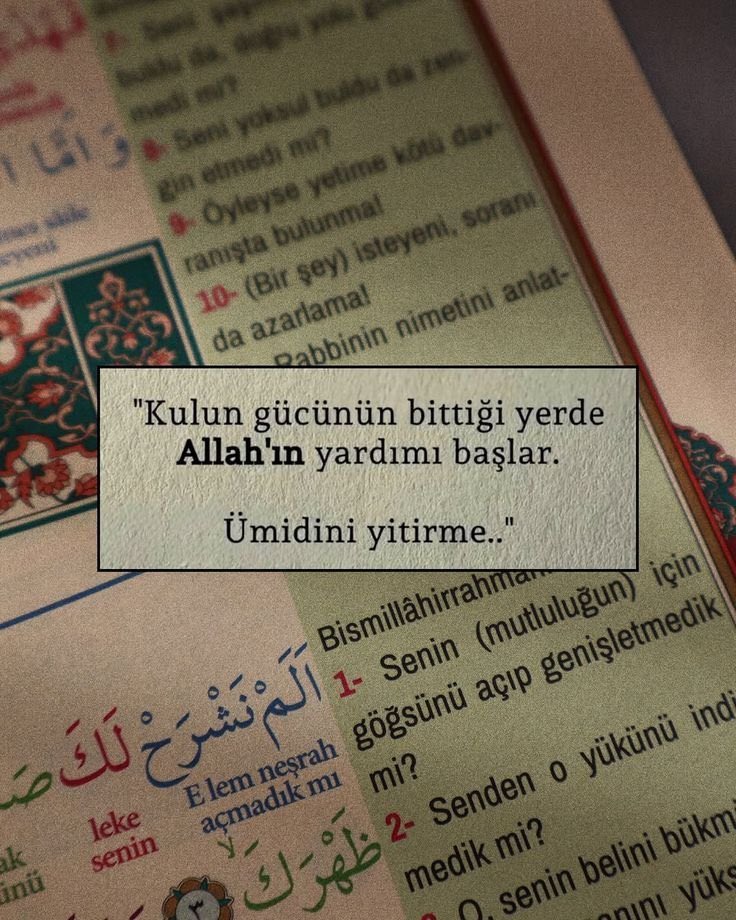 7- Seni
buldu da, doğru yolu
medi mi?
8- Seni yoksul buldu da zen-
gin etmedi mi?
9- Öyleyse yetime kötü dav-
ranışta bulunma!
10- (Bir şey) isteyeni, soranı
da azarlama!
Rabbinin nimetini anlat-
وَاَمَّا
"Kulun gücünün bittiği yerde
Allah'ın yardımı başlar.
Ümidini yitirme.."
Bismillâhirrahman
1- Senin (mutluluğun) için
göğsünü açıp genişletmedik
mi?
2- Senden o yükünü indi
medik mi?
O, senin belini bükm
اَلَمْ نَشْرَحْ لَكَ
E lem neşrah
leke
açmadık mı
senin
ظَهْرَكَ
٣